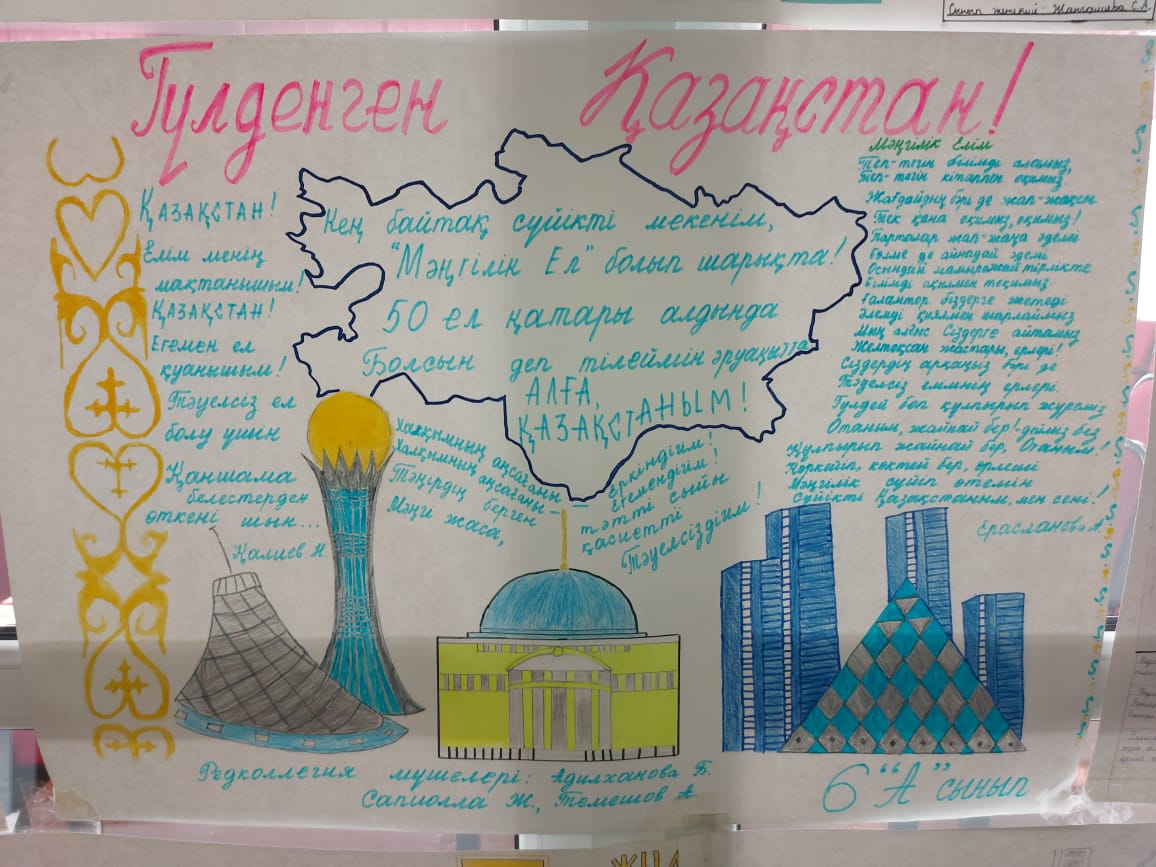 Сынып жетекші: Жангашева С.А.
Гүлденген Қазақстан!
Қазақстан!
Елім менің
мақтанышым!
Қазақстан!
Егемен ел
қуанышым!
Тәуелсіз ел
болу үшін
Қаншама
белестерден
өткені шын...
Қалиев Н.
Кең байтақ сүйікті мекенім,
"Мәңгілік Ел" болып шарықта!
50 ел қатары алдында
Болсын деп тілеймін әруақытта
АЛҒА,
ҚАЗАҚСТАНЫМ!
Халқымның аңсағаны
Халқымның аңсағаны –
Тәңірдің берген
Мәңгі жаса,
Еркіндігім!
Егемендігім!
тәтті сыйы
қасиетті
Тәуелсіздігім!
Мәңгілік Елім
Теп-тегін білімді аламыз,
Теп-тегін кітаппен оқимыз.
Жағдайдың бәрі де жап-жақсы
Тек қана оқимыз, оқимыз!
Парталар жап-жаңа әдемі
Бөлме де айнадай әдемі
Осындай мамыражай тірлікте
Білімді ақылмен тоқимыз.
Ғаламтор біздерге жетеді
Әлемді қиялмен шарлаймыз
Мың алғыс Сіздерге айтамыз
Желтоқсан жастары, ерлері!
Сіздердің арқаңыз бәрі де
Тәуелсіз елімнің ерлері.
Гүлдей боп құлпырып жүреміз
Отаным, жайнай бер!-дейміз біз
Құлпырып жайнай бер, Отаным!
Көркейіп, көктей бер, өрлеші
Мәңгілік сүйіп өтемін
Сүйікті Қазақстаным, мен сені!
Ерасланова А.
Редколлегия мүшелері: Адилханова Б.
Сапиолла Ж., Темешов А.
6 "А" сынып